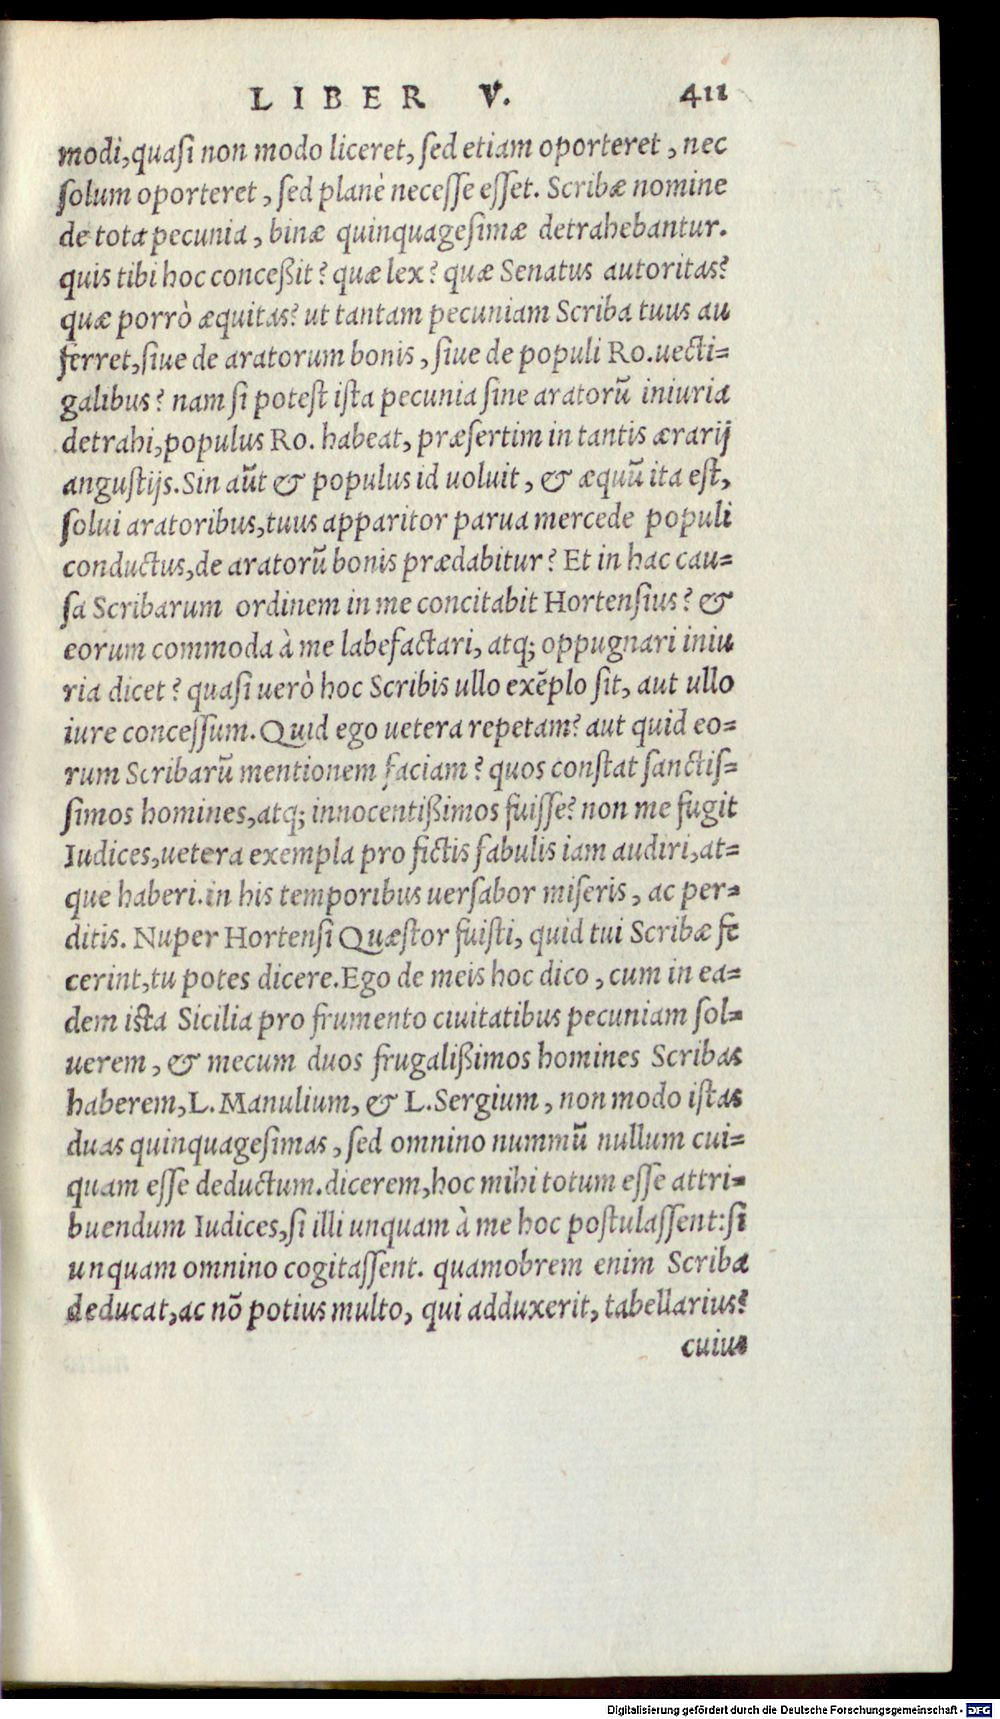 LIBER V. 411
modi,quasi non modo liceret, sed etiam oporteret, nec
solum oporteret, sed planè necesse esset. Scribæ nomine
de tota pecunia, binæ quinquagesimæ detrahebantur.
quis tibi hoc conceßit? quæ lex? quæ Senatus autoritas?
quæ porrò æquitas? ut tantam pecuniam Scriba tuus au
ferret,siue de aratorum bonis, siue de populi Ro.uecti=
galibus? nam si potest ista pecunia sine aratorũ iniuria
detrahi,populus Ro. habeat, præsertim in tantis ærarij
angustijs.Sin aũt & populus id uoluit, & æquũ ita est,
solui aratoribus,tuus apparitor parua mercede populi
conductus,de aratorũ bonis prædabitur? Et in hac cau=
sa Scribarum ordinem in me concitabit Hortensius? &
eorum commoda à me labefactari, atq; oppugnari iniu
ria dicet? quasi uerò hoc Scribis ullo exẽplo sit, aut ullo
iure concessum. Quid ego uetera repetam? aut quid eo=
rum Scribarũ mentionem faciam? quos constat sanctis=
simos homines,atq; innocentißimos fuisse? non me fugit
Iudices,uetera exempla pro fictis fabulis iam audiri,at=
que haberi.in his temporibus uersabor miseris, ac per=
ditis. Nuper Hortensi Quæstor fuisti, quid tui Scribæ fe
cerint,tu potes dicere.Ego de meis hoc dico, cum in ea=
dem ista Sicilia pro frumento ciuitatibus pecuniam sol=
uerem, & mecum duos frugalißimos homines Scribas
haberem,L.Manulium, & L.Sergium, non modo istas
duas quinquagesimas, sed omnino nummũ nullum cui=
quam esse deductum.dicerem,hoc mihi totum esse attri=
buendum Iudices,si illi unquam à me hoc postulassent:si
unquam omnino cogitassent. quamobrem enim Scriba
deducat,ac nõ potius multo, qui adduxerit, tabellarius?
cuius
Digitalisierung gefördert durch die Deutsche Forschungsgemeinschaft - DFG